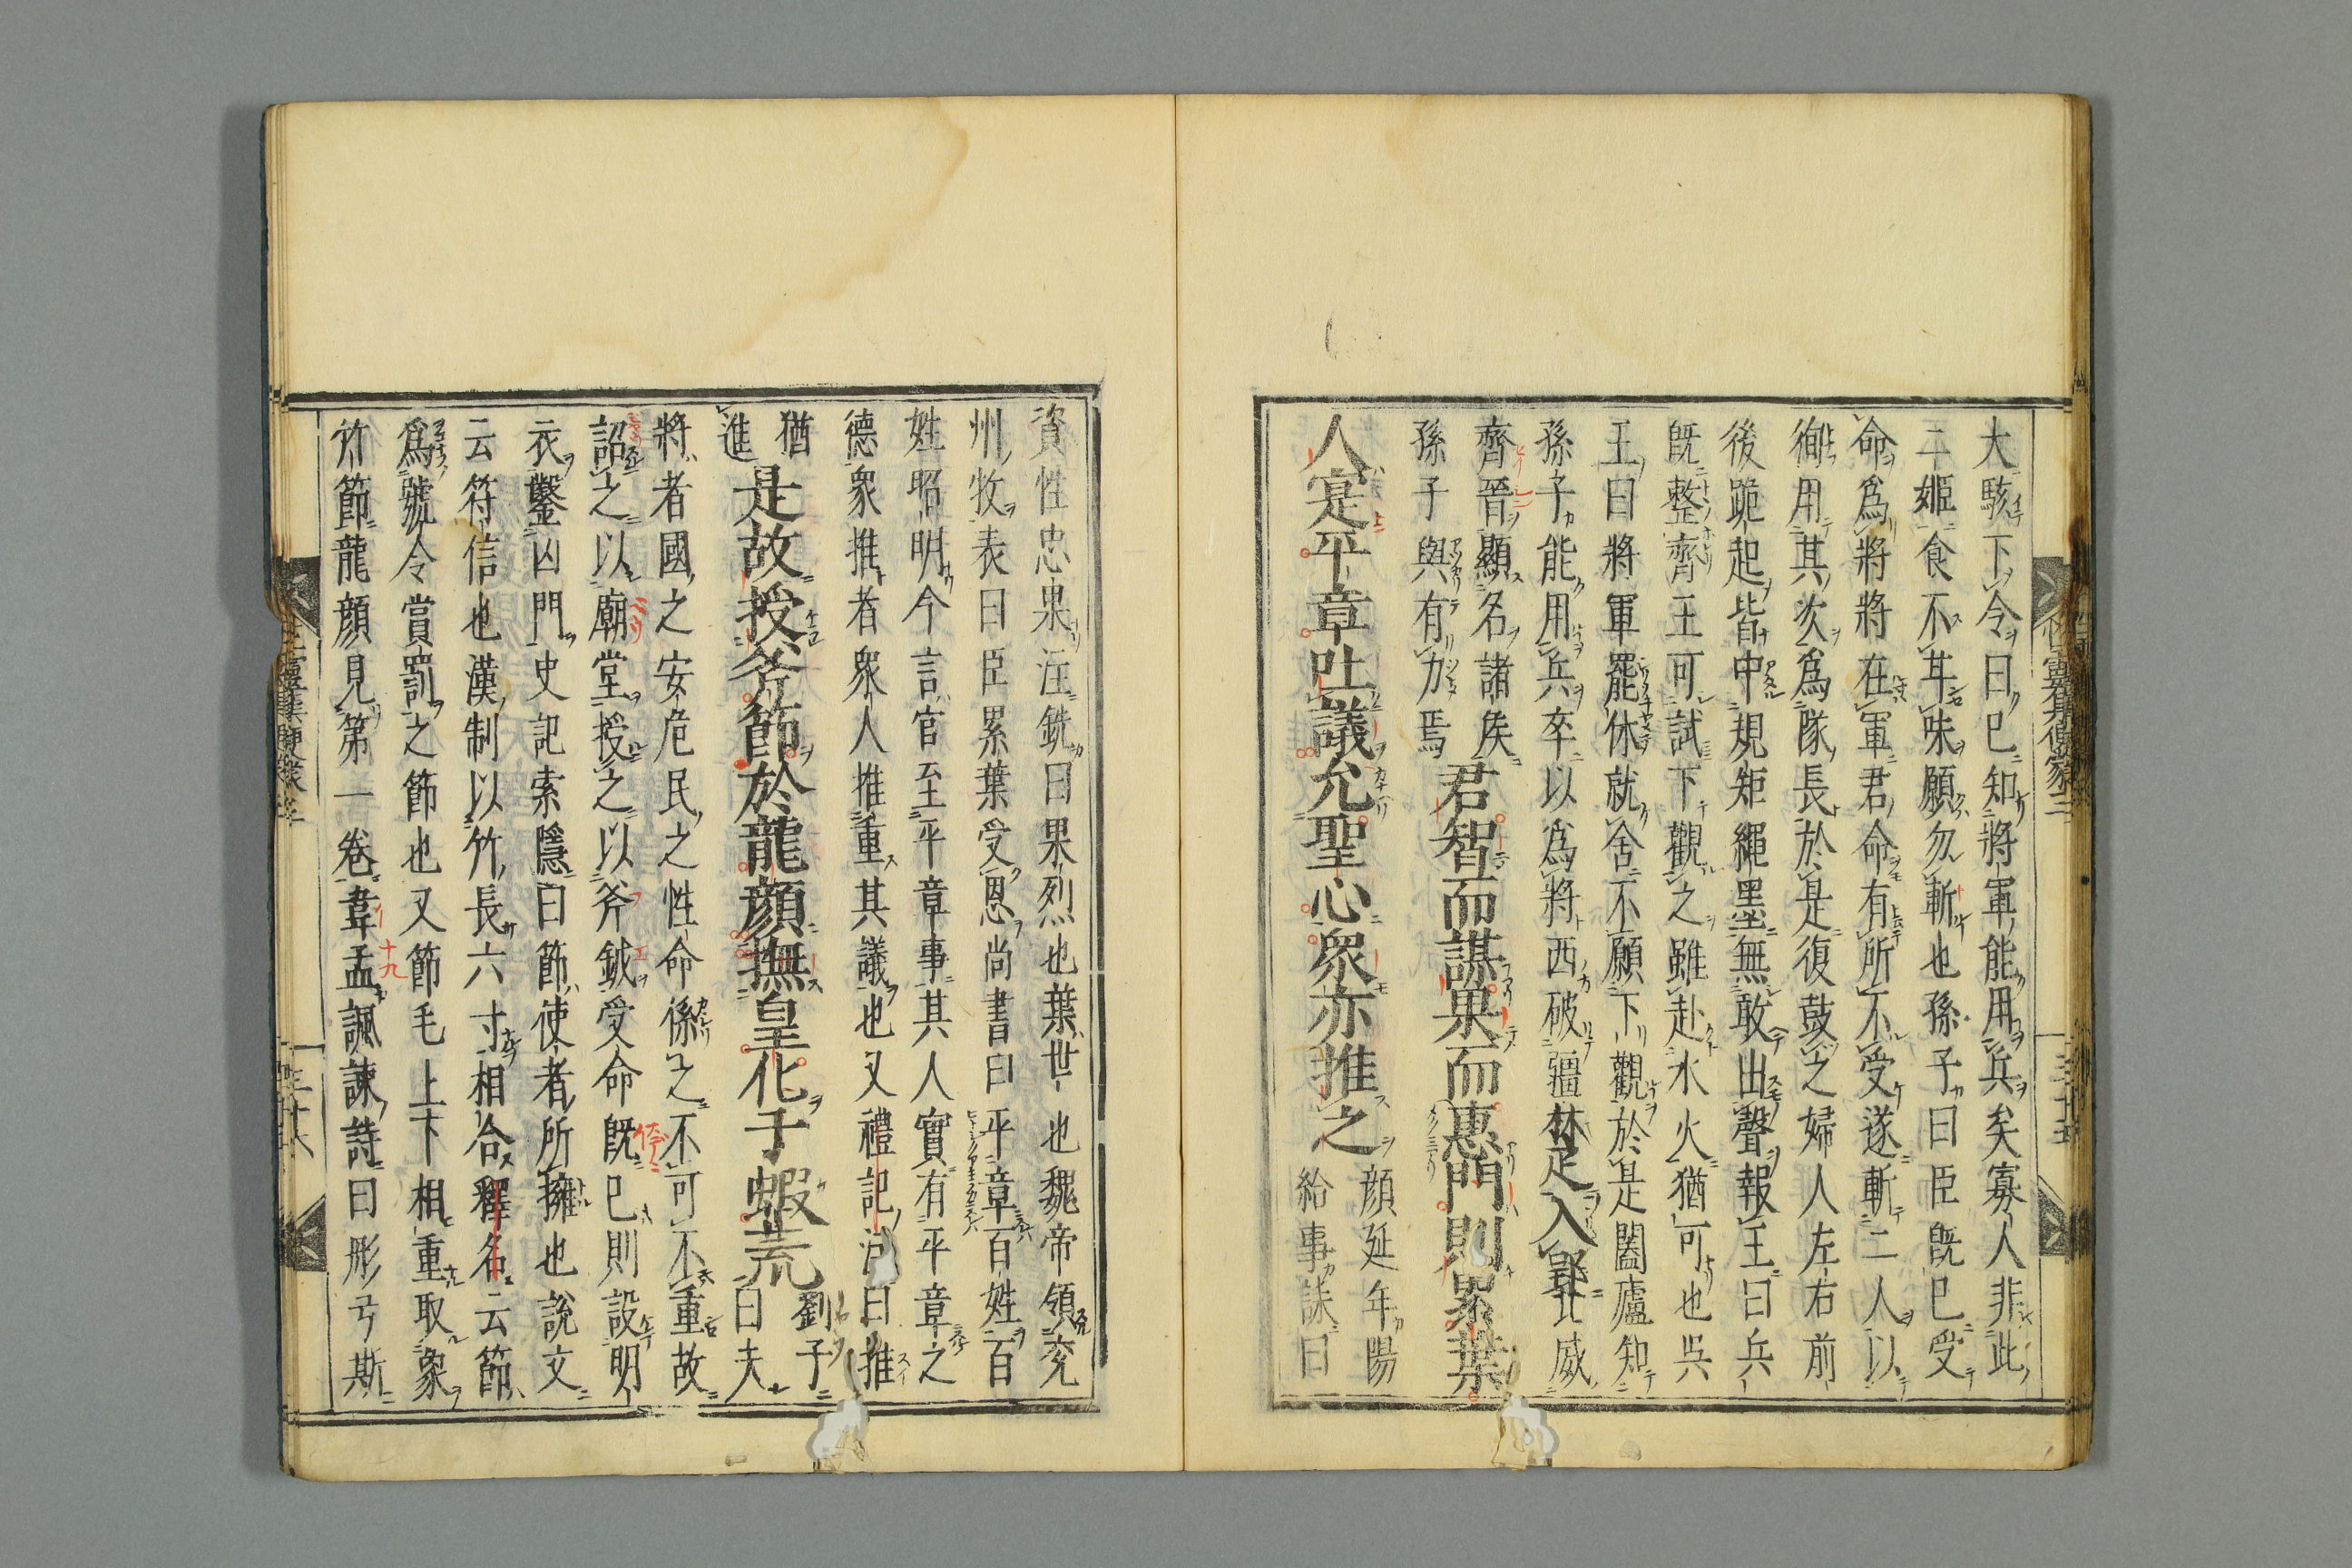 大駭下令曰已知將軍能用兵矣寡人非此
二姬食不甘味願勿斬也孫子曰臣既已受
命爲將將在軍君命有所不受遂斬二人以
徇用其次爲隊長於是復鼓之婦人左右前
後跪起皆中規矩繩墨無敢出聲報王曰兵
既整齊王可試下觀之雖赴水火猶可也吳
王曰將軍罷休就舍不願下觀於是闔廬知
孫子能用兵卒以爲將西破疆楚入郢北威
齊晉顯名諸矦
孫子與有力焉
君智而謀果而惠門則累葉
人寔平章吐議允聖心衆亦推之
顔延年陽
給事誄曰
資性忠果注銑曰果烈也葉世也魏帝領兗
州牧表曰臣累葉受恩尚書曰平章百姓百
姓昭明今言官至平章事其人實有平章之
德衆推者衆人推重其議也又禮記注曰推
猶
進
是故授斧節於龍顔撫皇化于蝦荒
劉子
曰夫
將者國之安危民之性命係之不可不重故
詔之以廟堂授之以斧鉞受命既已則設明
衣鑿凶門史記索隱曰節使者所擁也說文
云符信也漢制以竹長六寸相合釋名云節
爲號令賞罰之節也又節毛上下相重取象
竹節龍顔見第一卷韋孟諷諫詩曰彤弓斯
十九
三十五